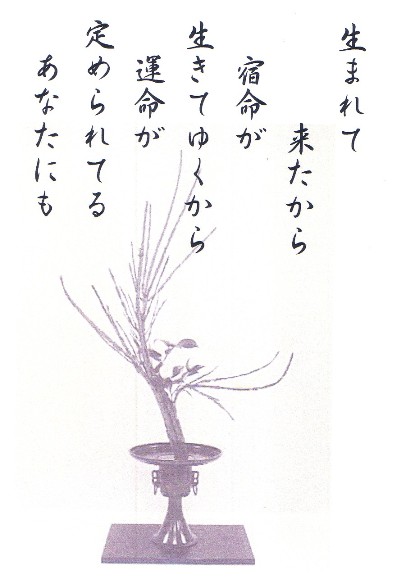 生まれて
来たから
宿命が
生きてゆくから
運命が
定められてる
あなたにも